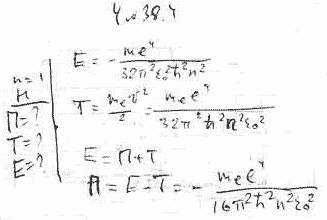 4 № 38.4
n = 1
H
П = ?
T = ?
E = ?
E = - me⁴ / 32π²ε₀²ħ²n²
T = mₑv² / 2 = mₑe⁴ / 32π²ħ²n²ε₀²
E = П + T
П = E - T = - mₑe⁴ / 16π²ħ²n²ε₀²